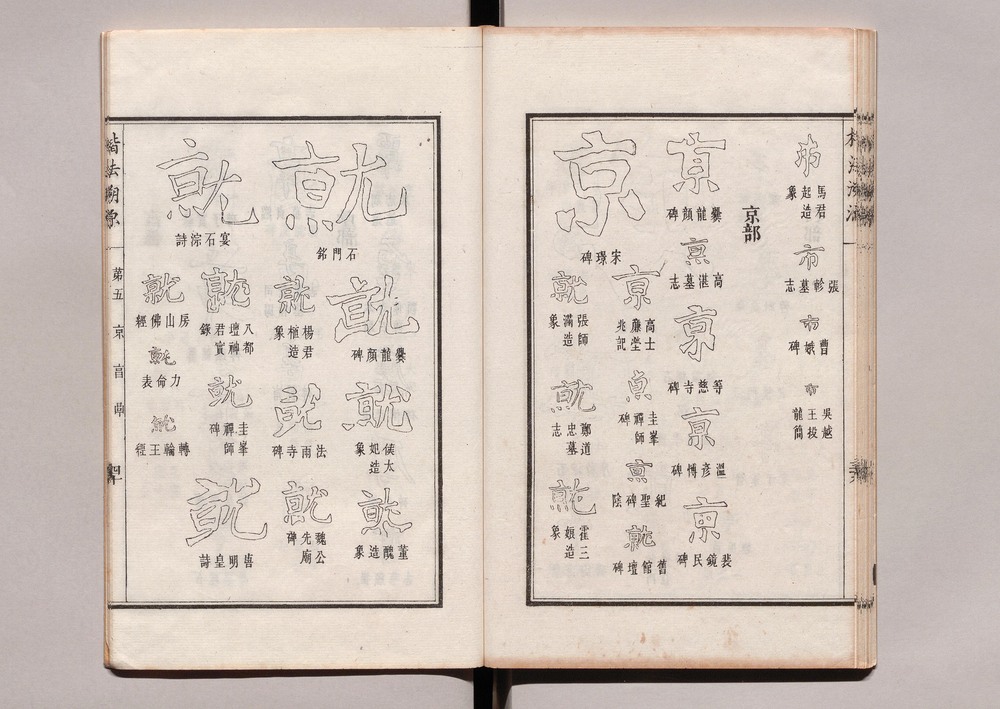 市
馬君起造象
市
張軫墓志
市
曹娥碑
市
吳越王投龍簡
京部
京
爨龍顏碑
京
高湛墓志
京
等慈寺碑
京
溫彥博碑
京
裴鏡民碑
京
宋璟碑
京
高士廉塋兆記
京
圭峯禪師碑
京
紀聖碑陰
就
舊館壇碑
就
張師滿造象
就
鄭道忠墓志
就
霍三娘造象
就
石門銘
就
爨龍顏碑
就
侯太妃造象
就
董醜造象
就
楊君植造象
就
法雨寺碑
就
魏公先廟碑
就
宴石淙詩
就
八都壇神君實錄
就
圭峯禪師碑
就
唐明皇詩
就
房山佛經
就
力命表
就
轉輪王徑
楷法溯源
第五 京